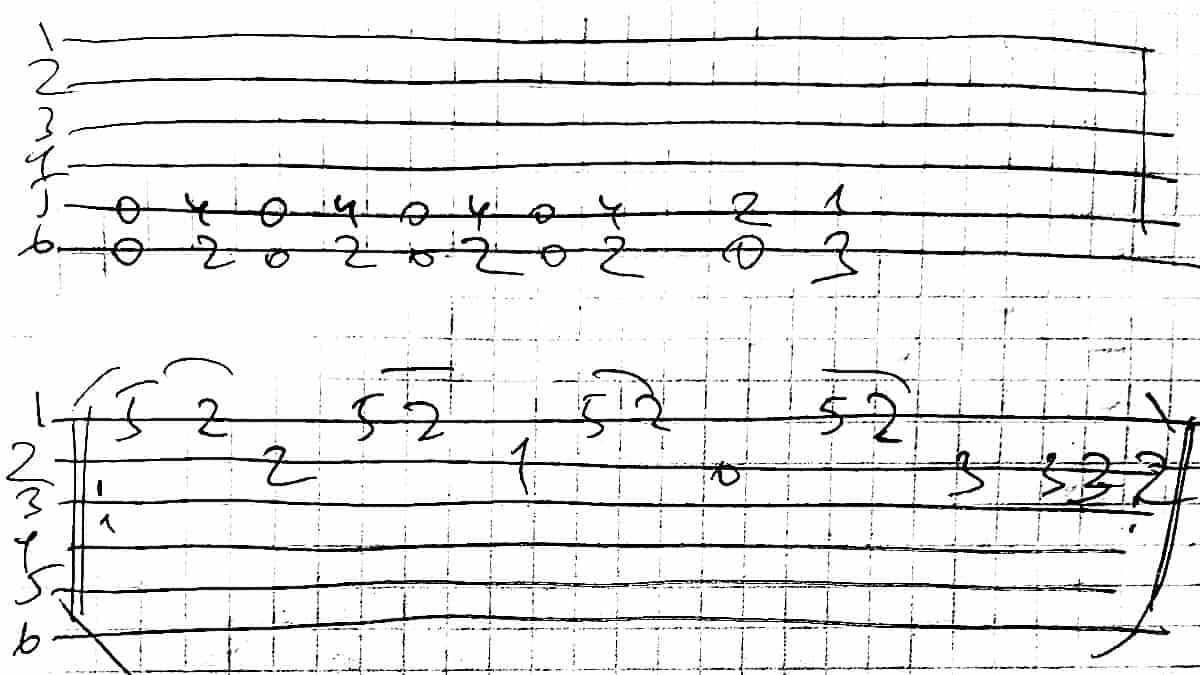 1
2
3
4
5 0 4 0 4 0 4 0 4 2 1
6 0 2 0 2 0 2 0 2 0 3
1 5 2 5 2 5 2 5 2
2 2 1 0 3 3 2 2
3
4
5
6